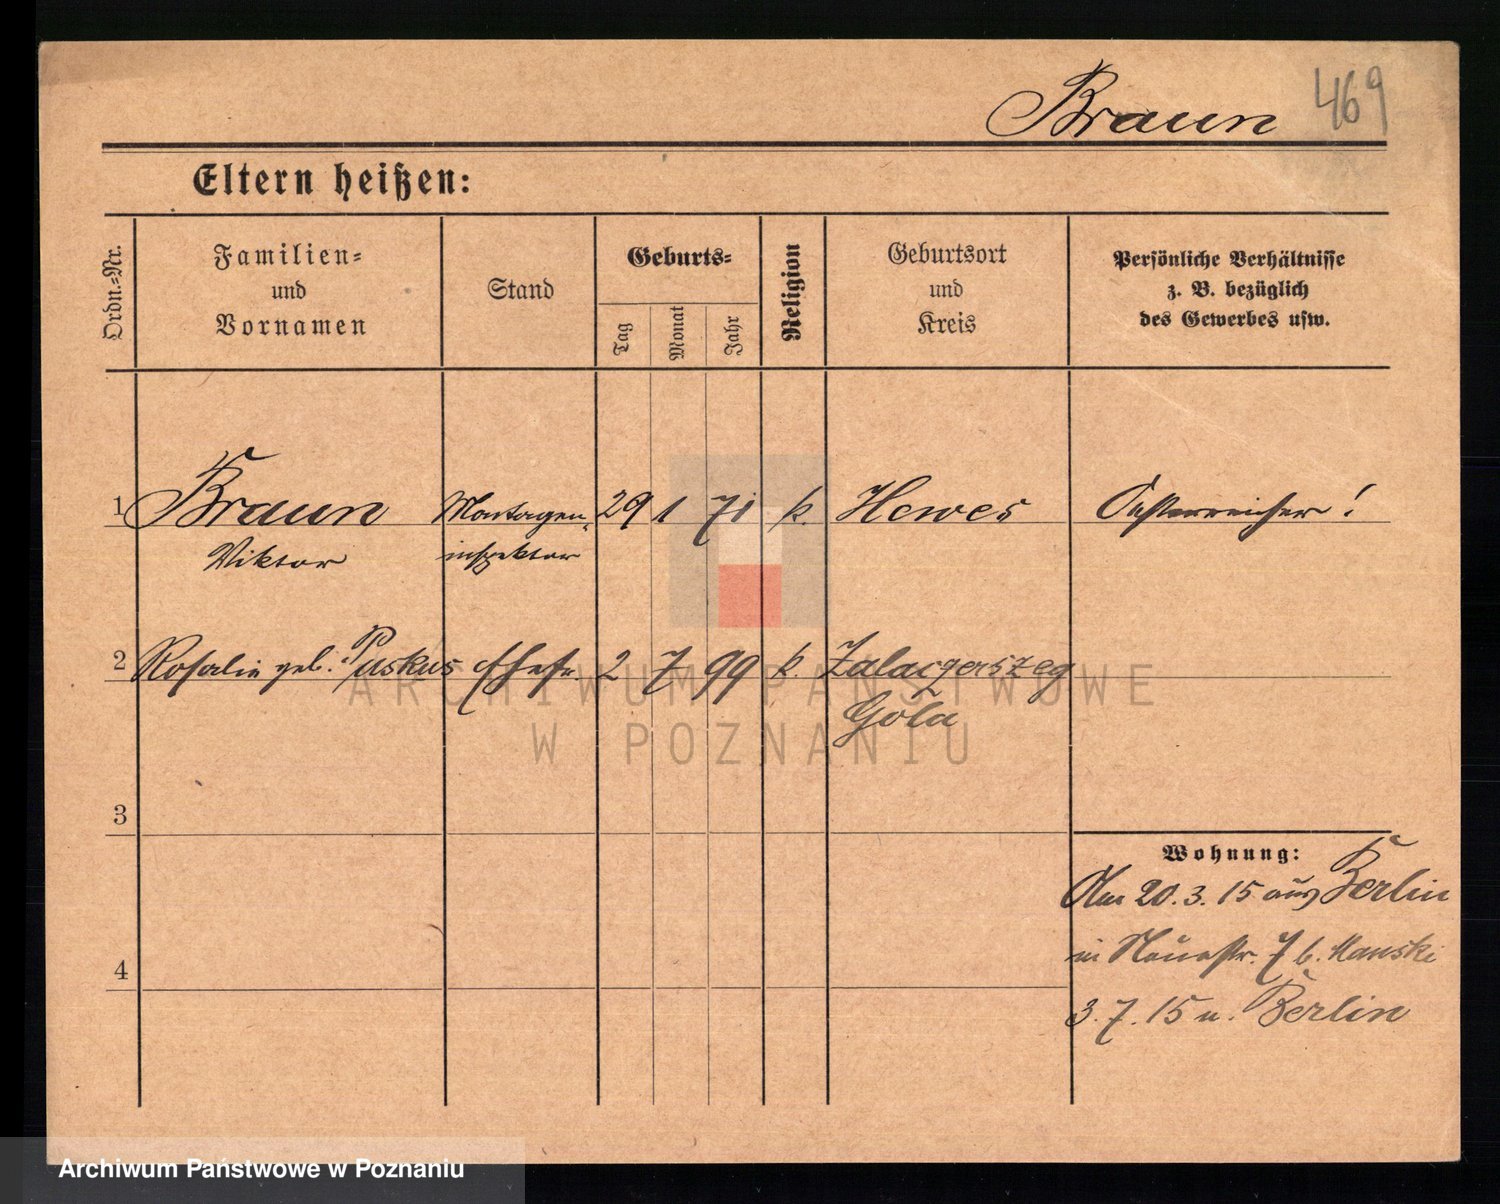 Braun 469
Eltern heißen:
Ordn.-Nr.
Familien-
und
Vornamen
Stand
Geburts-
Tag
Monat
Jahr
Religion
Geburtsort
und
Kreis
Persönliche Verhältnisse
z. B. bezüglich
des Gewerbes usw.
1 Braun Montagen- 29 1 71 k. Hewes Oesterreicher!
Viktor inspektor
2 Rosalie geb. Puskus Ehefr. 2 7 99 k. Zalaegerszeg
Gola
3
4
Wohnung:
Am 20. 3. 15 aus Berlin
in Neuestr. 7 b. Manski
3. 7. 15 n. Berlin
ARCHIWUM PAŃSTWOWE
W POZNANIU
Archiwum Państwowe w Poznaniu